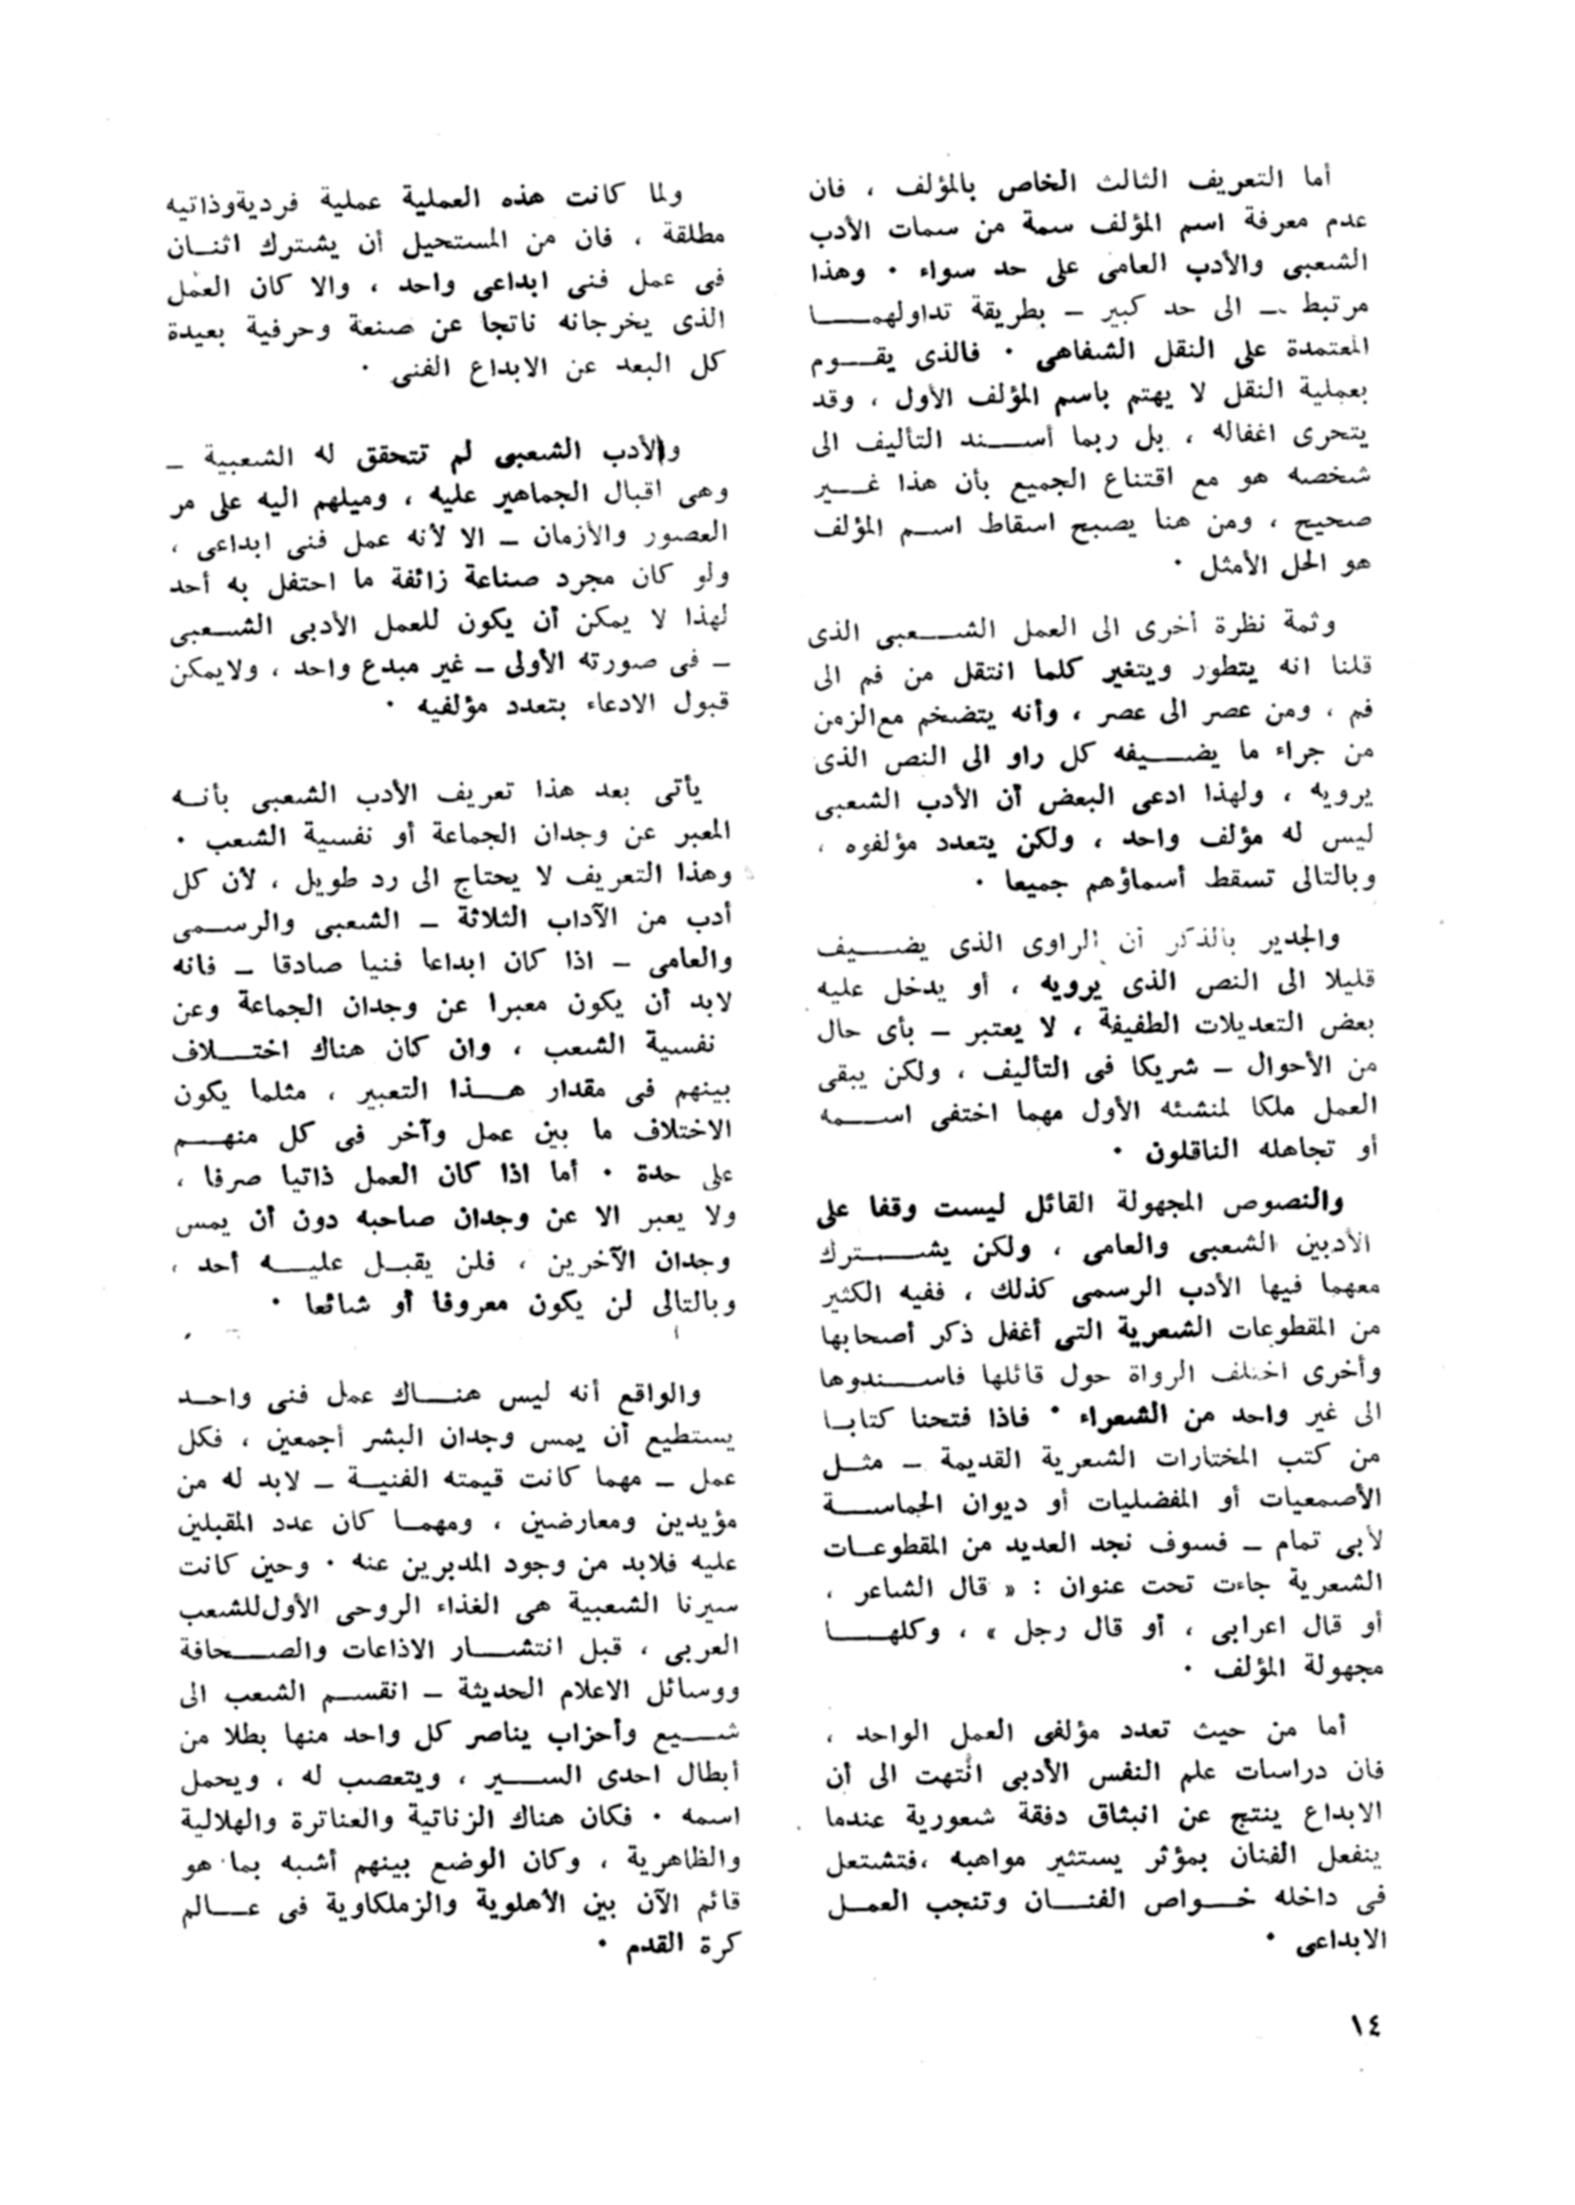 أما التعريف الثالث الخاص بالمؤلف ، فان
عدم معرفة اسم المؤلف سمة من سمات الأدب
الشعبى والأدب العامى على حد سواء ٠ وهذا
مرتبط – الى حد كبير – بطريقة تداولهما
المعتمدة على النقل الشفاهى ٠ فالذى يقوم
بعملية النقل لا يهتم باسم المؤلف الأول ، وقد
يتحرى اغفاله ، بل ربما أسند التأليف الى
شخصه هو مع اقتناع الجميع بأن هذا غير
صحيح ، ومن هنا يصبح اسقاط اسم المؤلف
هو الحل الأمثل ٠
وثمة نظرة أخرى الى العمل الشعبى الذى
قلنا انه يتطور ويتغير كلما انتقل من فم الى
فم ، ومن عصر الى عصر ، وأنه يتضخم مع الزمن
من جراء ما يضيفه كل راو الى النص الذى
يرويه ، ولهذا ادعى البعض أن الأدب الشعبى
ليس له مؤلف واحد ، ولكن يتعدد مؤلفوه ،
وبالتالى تسقط أسماؤهم جميعا ٠
والجدير بالذكر أن الراوى الذى يضيف
قليلا الى النص الذى يرويه ، أو يدخل عليه
بعض التعديلات الطفيفة ، لا يعتبر – بأى حال
من الأحوال – شريكا فى التأليف ، ولكن يبقى
العمل ملكا لمنشئه الأول مهما اختفى اسمه
أو تجاهله الناقلون ٠
والنصوص المجهولة القائل ليست وقفا على
الأدبين الشعبى والعامى ، ولكن يشترك
معهما فيها الأدب الرسمى كذلك ، ففيه الكثير
من المقطوعات الشعرية التى أغفل ذكر أصحابها
وأخرى اختلف الرواة حول قائلها فاسندوها
الى غير واحد من الشعراء ٠ فاذا فتحنا كتابا
من كتب المختارات الشعرية القديمة – مثل
الأصمعيات أو المفضليات أو ديوان الحماسة
لأبى تمام – فسوف نجد العديد من المقطوعات
الشعرية جاءت تحت عنوان : « قال الشاعر ،
أو قال اعرابى ، أو قال رجل » ، وكلها
مجهولة المؤلف ٠
أما من حيث تعدد مؤلفى العمل الواحد ،
فان دراسات علم النفس الأدبى انتهت الى أن
الابداع ينتج عن انبثاق دفقة شعورية عندما
ينفعل الفنان بمؤثر يستثير مواهبه ،فتشتعل
فى داخله خواص الفنان وتنجب العمل
الابداعى ٠
ولما كانت هذه العملية عملية فردية وذاتيه
مطلقة ، فان من المستحيل أن يشترك اثنان
فى عمل فنى ابداعى واحد ، والا كان العمل
الذى يخرجانه ناتجا عن صنعة وحرفية بعيدة
كل البعد عن الابداع الفنى ٠
والأدب الشعبى لم تتحقق له الشعبية –
وهى اقبال الجماهير عليه ، وميلهم اليه على مر
العصور والأزمان – الا لأنه عمل فنى ابداعى ،
ولو كان مجرد صناعة زائفة ما احتفل به أحد
لهذا لا يمكن أن يكون للعمل الأدبى الشعبى
– فى صورته الأولى – غير مبدع واحد ، ولا يمكن
قبول الادعاء بتعدد مؤلفيه ٠
يأتى بعد هذا تعريف الأدب الشعبى بأنه
المعبر عن وجدان الجماعة أو نفسية الشعب ٠
وهذا التعريف لا يحتاج الى رد طويل ، لأن كل
أدب من الآداب الثلاثة – الشعبى والرسمى
والعامى – اذا كان ابداعا فنيا صادقا – فانه
لابد أن يكون معبرا عن وجدان الجماعة وعن
نفسية الشعب ، وان كان هناك اختلاف
بينهم فى مقدار هذا التعبير ، مثلما يكون
الاختلاف ما بين عمل وآخر فى كل منهم
على حدة ٠ أما اذا كان العمل ذاتيا صرفا ،
ولا يعبر الا عن وجدان صاحبه دون أن يمس
وجدان الآخرين ، فلن يقبل عليه أحد ،
وبالتالى لن يكون معروفا أو شائعا ٠
والواقع أنه ليس هناك عمل فنى واحد
يستطيع أن يمس وجدان البشر أجمعين ، فكل
عمل – مهما كانت قيمته الفنية – لابد له من
مؤيدين ومعارضين ، ومهما كان عدد المقبلين
عليه فلابد من وجود المدبرين عنه ٠ وحين كانت
سيرنا الشعبية هى الغذاء الروحى الأول للشعب
العربى ، قبل انتشار الاذاعات والصحافة
ووسائل الاعلام الحديثة – انقسم الشعب الى
شيع وأحزاب يناصر كل واحد منها بطلا من
أبطال احدى السير ، ويتعصب له ، ويحمل
اسمه ٠ فكان هناك الزناتية والعناترة والهلالية
والظاهرية ، وكان الوضع بينهم أشبه بما هو
قائم الآن بين الأهلوية والزملكاوية فى عالم
كرة القدم ٠
١٤